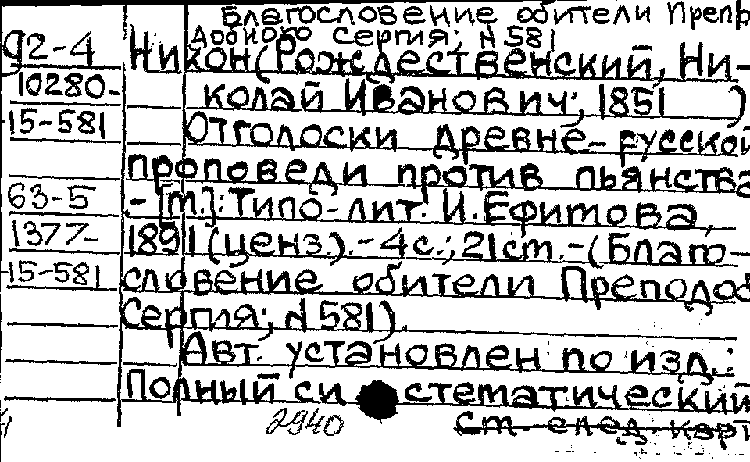 Благословение обители Преп
Серия; N 581
92-4 Никон (Рождественский, Ни-
10280- колай Иванович; 1851 )
15-581 Отголоски древне-русской
проповеди против пьянства
63-5 .-[М.]: Типо-лит. И.Ефимова,
1377- 1891 (ценз.).-4с.; 21см.-(Благо-
15-581 словение обители Преподоб
Сергия; N 581).
Авт. установлен по изд.:
Полный систематический
2940 См. след. карт